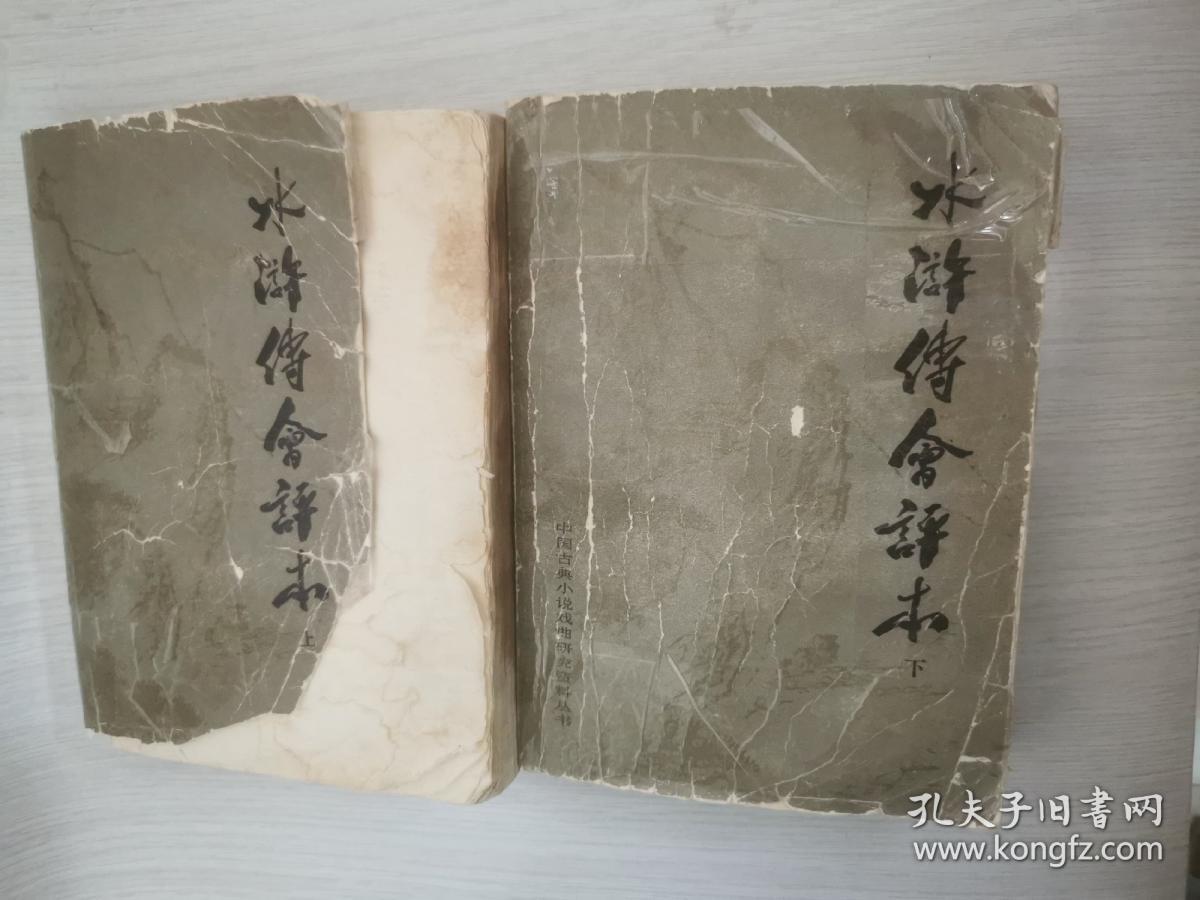 水滸傳會評本
上
水滸傳會評本
下
中国古典小说戏曲研究资料丛书
孔夫子旧书网
www.kongfz.com